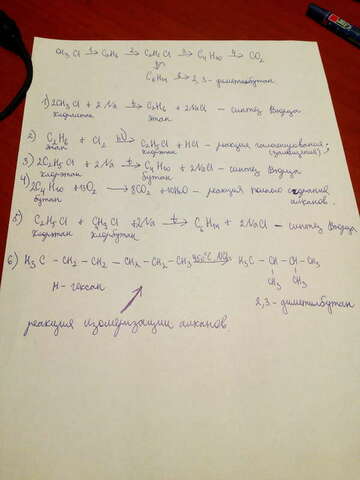 CH₃Cl 1→ C₂H₆ 2→ C₂H₅Cl 3→ C₄H₁₀ 4→ CO₂
5↓
C₆H₁₄ 6→ 2,3-диметилбутан
1) 2CH₃Cl + 2Na t→ C₂H₆ + 2NaCl – синтез Вюрца
хлорметан этан
2) C₂H₆ + Cl₂ hν→ C₂H₅Cl + HCl – реакция галогенирования;
этан хлорэтан (замещения)
3) 2C₂H₅Cl + 2Na t→ C₄H₁₀ + 2NaCl – синтез Вюрца
хлорэтан бутан
4) 2C₄H₁₀ + 13O₂ → 8CO₂ + 10H₂O – реакция полного сгорания
бутан алканов.
5) C₂H₅Cl + C₄H₉Cl + 2Na t→ C₆H₁₄ + 2NaCl – синтез Вюрца
хлорэтан хлорбутан
6) H₃C – CH₂ – CH₂ – CH₂ – CH₂ – CH₃ 450°C, → H₃C – CH – CH – CH₃
CH₃ CH₃
Н – гексан
2,3-диметилбутан
реакция изомеризации алканов.